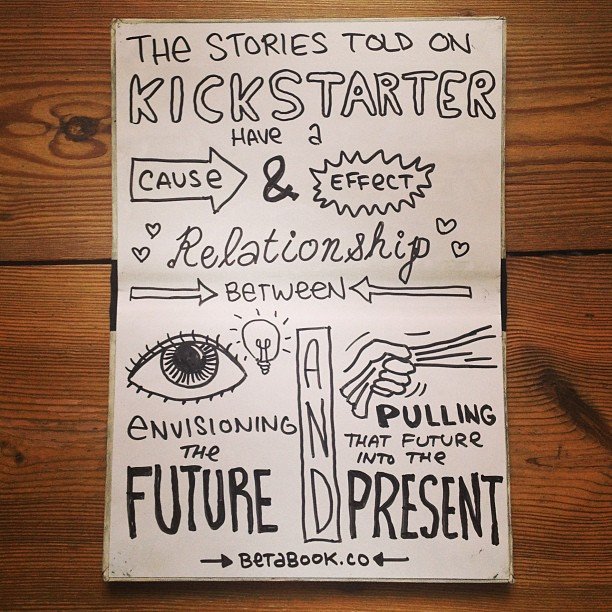 THE STORIES TOLD ON
KICKSTARTER
HAVE a
CAUSe & EFFECT
Relationship
BeTWeeN
eNVISIONING
THe
FUTURE
AND
PULLING
THAT FUTURE
INTO THE
PRESENT
BeTaBOOK.CO